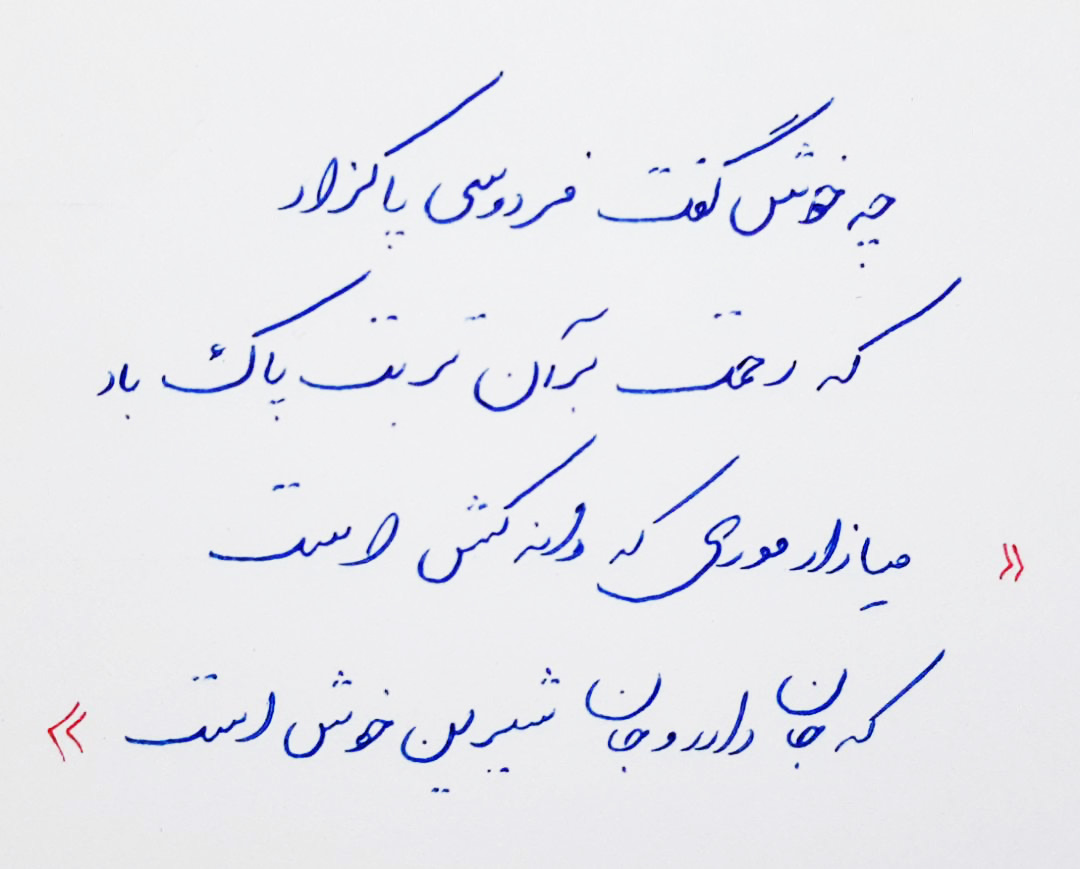 چه خوش گفت فردوسی پاکزاد
که رحمت برآن تربت پاک باد
«میازار موری که دانه کش است
که جان دارد و جان شیرین خوش است»